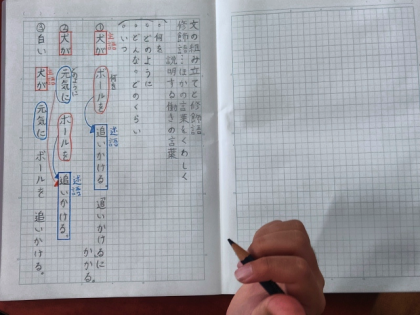 文の組み立てと修飾語
修飾語…ほかの言葉をくわしく
説明する働きの言葉
・何を
・どのように
・どんな・どのくらい
・いつ
主語 何を 述語
① 犬が ボールを 追いかける。 追いかけるに
かかる。
どのように 述語
② 犬が 元気に ボールを 追いかける。
主語
③ 白い 犬が 元気に ボールを 追いかける。